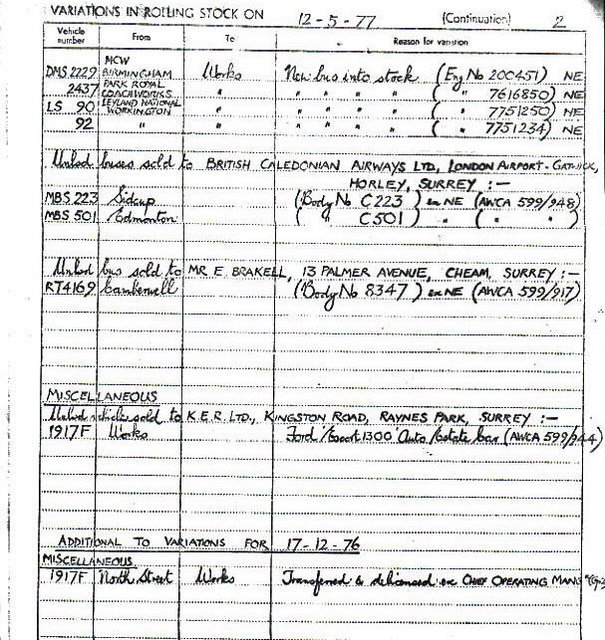 VARIATIONS IN ROLLING STOCK ON 12-5-77 (Continuation) 2
Vehicle number From To Reason for variation
MCW
DMS 2229 BIRMINGHAM Works New bus into stock (Eng No 200451) NE
PARK ROYAL
2437 COACHWORKS " " " " " ( " 7616850) NE
LEYLAND NATIONAL
LS 90 WORKINGTON " " " " " ( " 7751250) NE
92 " " " " " " ( " 7751234) NE
Unlicd buses sold to BRITISH CALEDONIAN AIRWAYS LTD, LONDON AIRPORT-GATWICK,
HORLEY, SURREY :-
MBS 223 Sidcup (Body No C223) ex NE (AWCA 599/948)
MBS 501 Edmonton ( " C501) " " ( " " )
Unlicd bus sold to MR E. BRAKELL, 13 PALMER AVENUE, CHEAM, SURREY :-
RT4169 Camberwell (Body No 8347) ex NE (AWCA 599/917)
MISCELLANEOUS
Unlicd vehicle sold to K.E.R. LTD., KINGSTON ROAD, RAYNES PARK, SURREY :-
1917F Works Ford 'Escort 1300' Auto/Estate Car (AWCA 599/944)
ADDITIONAL TO VARIATIONS FOR 17-12-76
MISCELLANEOUS
1917F North Street Works Transferred & delicensed ex CHIEF OPERATING MANG